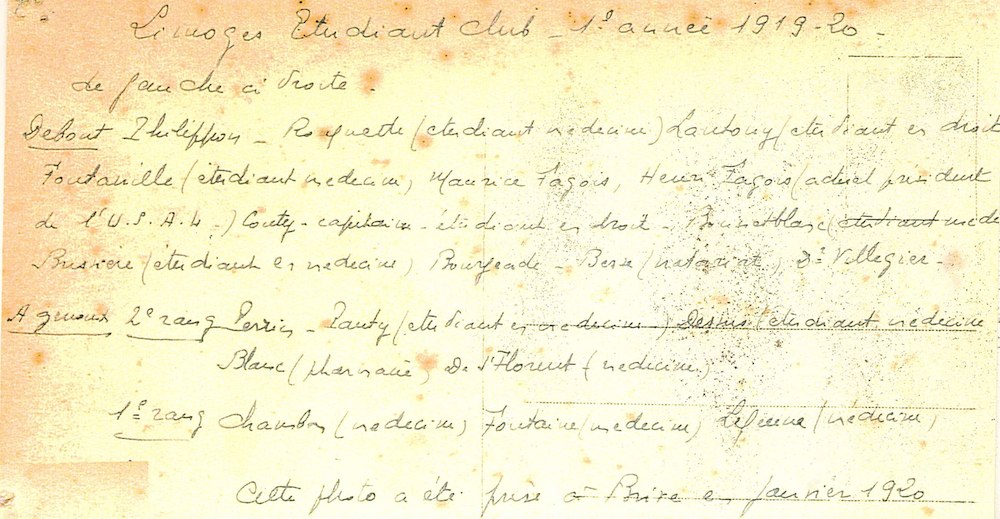 Limoges Etudiant Club - 1e année 1919-20 -
de gauche à droite.
Debout Philippon - Rouquette (etudiant médecine) Lantony (etudiant en droit
Fontanille (étudiant médecin, Maurice Fagois, Henri Fagois (actuel président
de l'U.S.A.L.) Couty - capitaine - étudiant en droit - Bonnetblanc (etudiant méde
Busière (étudiant en medecine) Bourgeade - Besse (notariat, Dr Villegier -
A genoux 2e rang Perrin - Tauty (etudiant en médecine) (étudiant médecine
Blanc (pharmacie) De St Florent (medecine)
1e rang Chambon (medecine) Fontaine (medecine) Lejeune (médecine,
Cette photo a été prise à Brive en janvier 1920